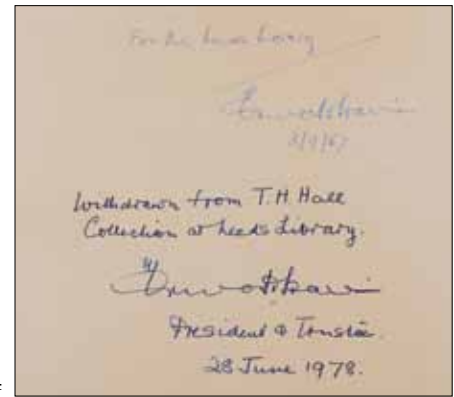 For the Leeds Library
Withdrawn from T.H. Hall
Collection at Leeds Library.
President & Trustee.
28 June 1978.